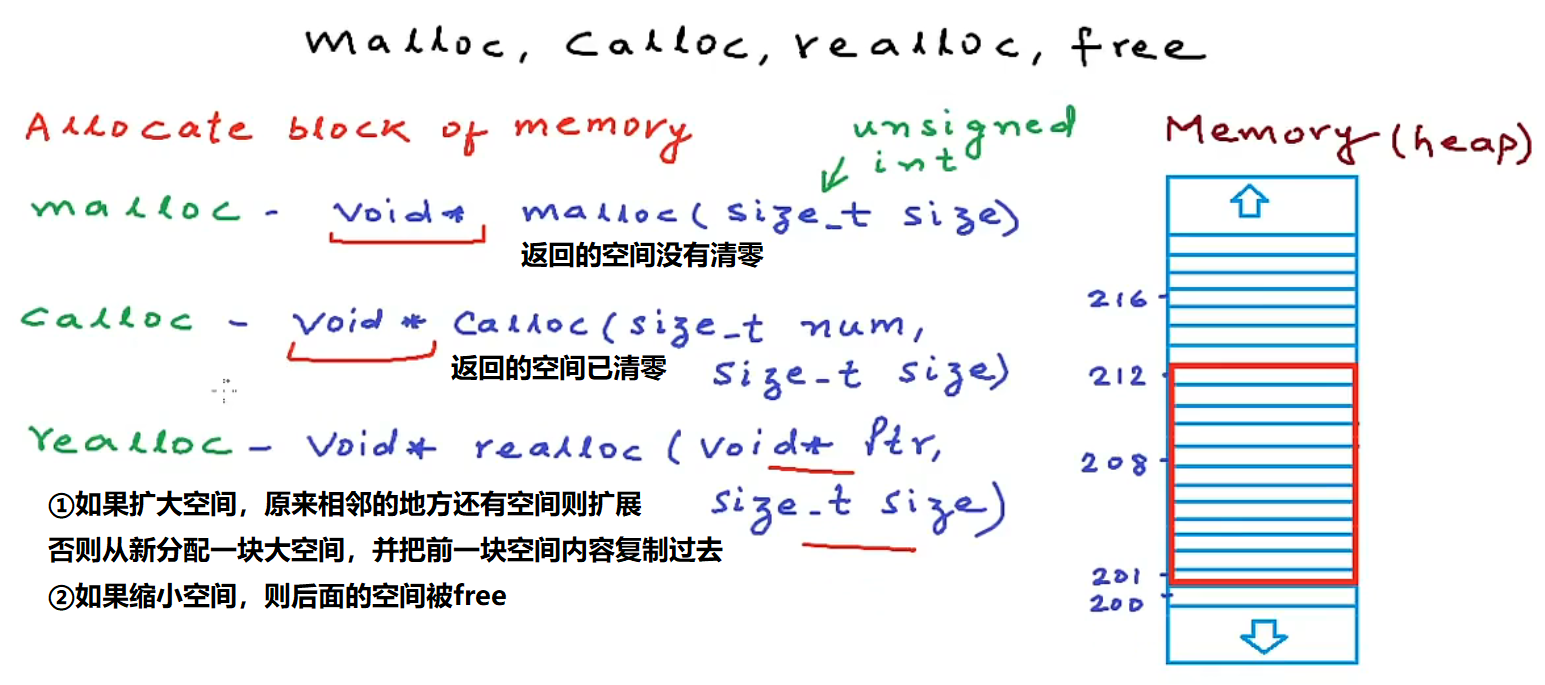 malloc, calloc, realloc, free
Allocate block of memory
unsigned
int
malloc - void* malloc(size_t size)
返回的空间没有清零
calloc - void* calloc(size_t num,
size_t size)
返回的空间已清零
realloc - void* realloc(void* Ptr,
size_t size)
①如果扩大空间，原来相邻的地方还有空间则扩展
否则从新分配一块大空间，并把前一块空间内容复制过去
②如果缩小空间，则后面的空间被free
Memory(heap)
216
212
208
201
200